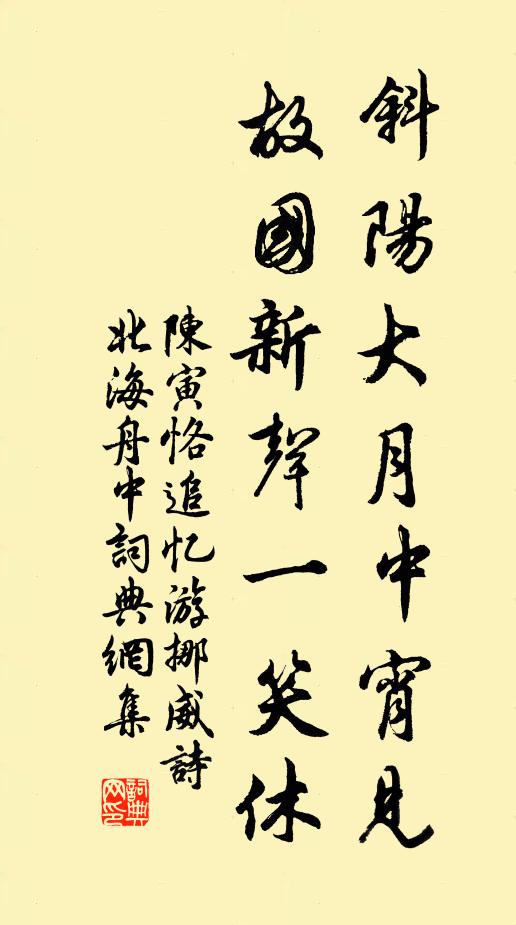 斜陽大月中宵見
故國新聲一笑休
陳寅恪追忆游挪威詩
北海舟中詞典網集
詞典
网印